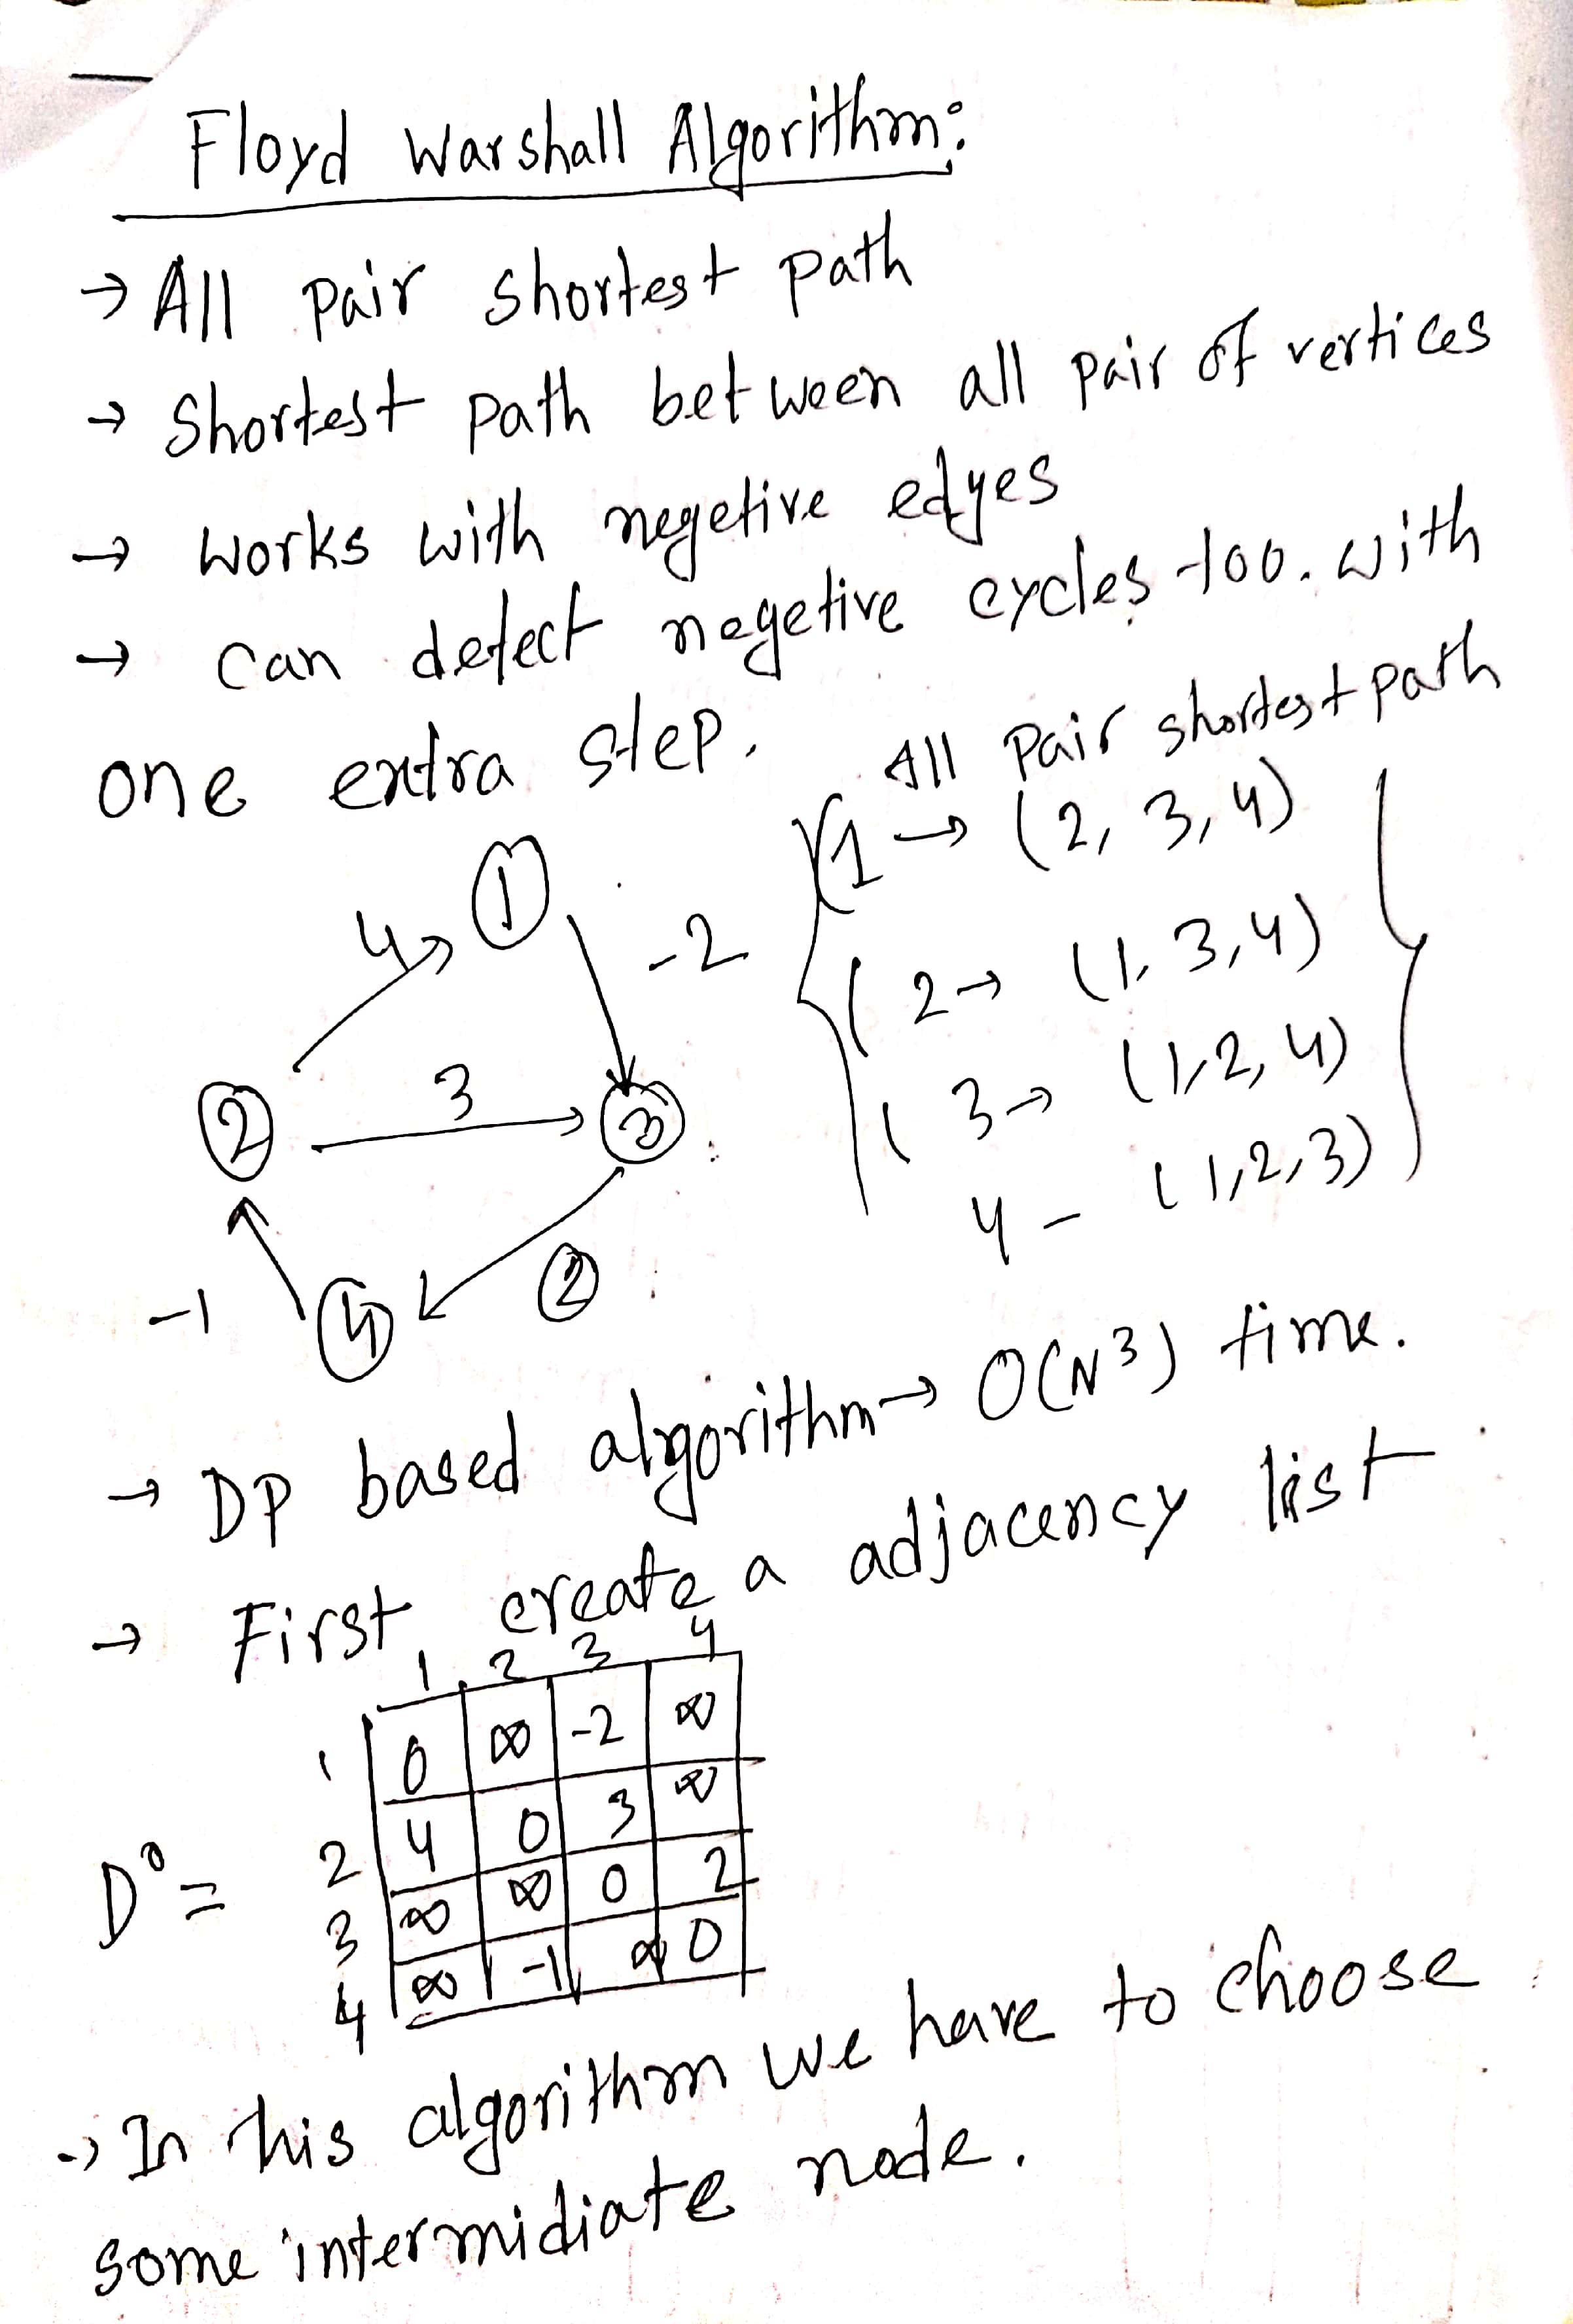 Floyd Warshall Algorithm:
→ All pair shortest path
→ Shortest path between all pair of vertices
→ works with negetive edges
→ can detect negetive cycles too. with
one extra step.
All Pair shortest path
1 → (2, 3, 4)
2 → (1, 3, 4)
3 → (1, 2, 4)
4 - (1, 2, 3)
1
4
-2
2
3
3
-1
4
2
→ DP based algorithm → O(N³) time.
→ First create a adjacency list
1 2 3 4
1 0 ∞ -2 ∞
2 4 0 3 ∞
D⁰ =
3 ∞ ∞ 0 2
4 ∞ -1 ∞ 0
→ In this algorithm we have to choose
some intermidiate node.